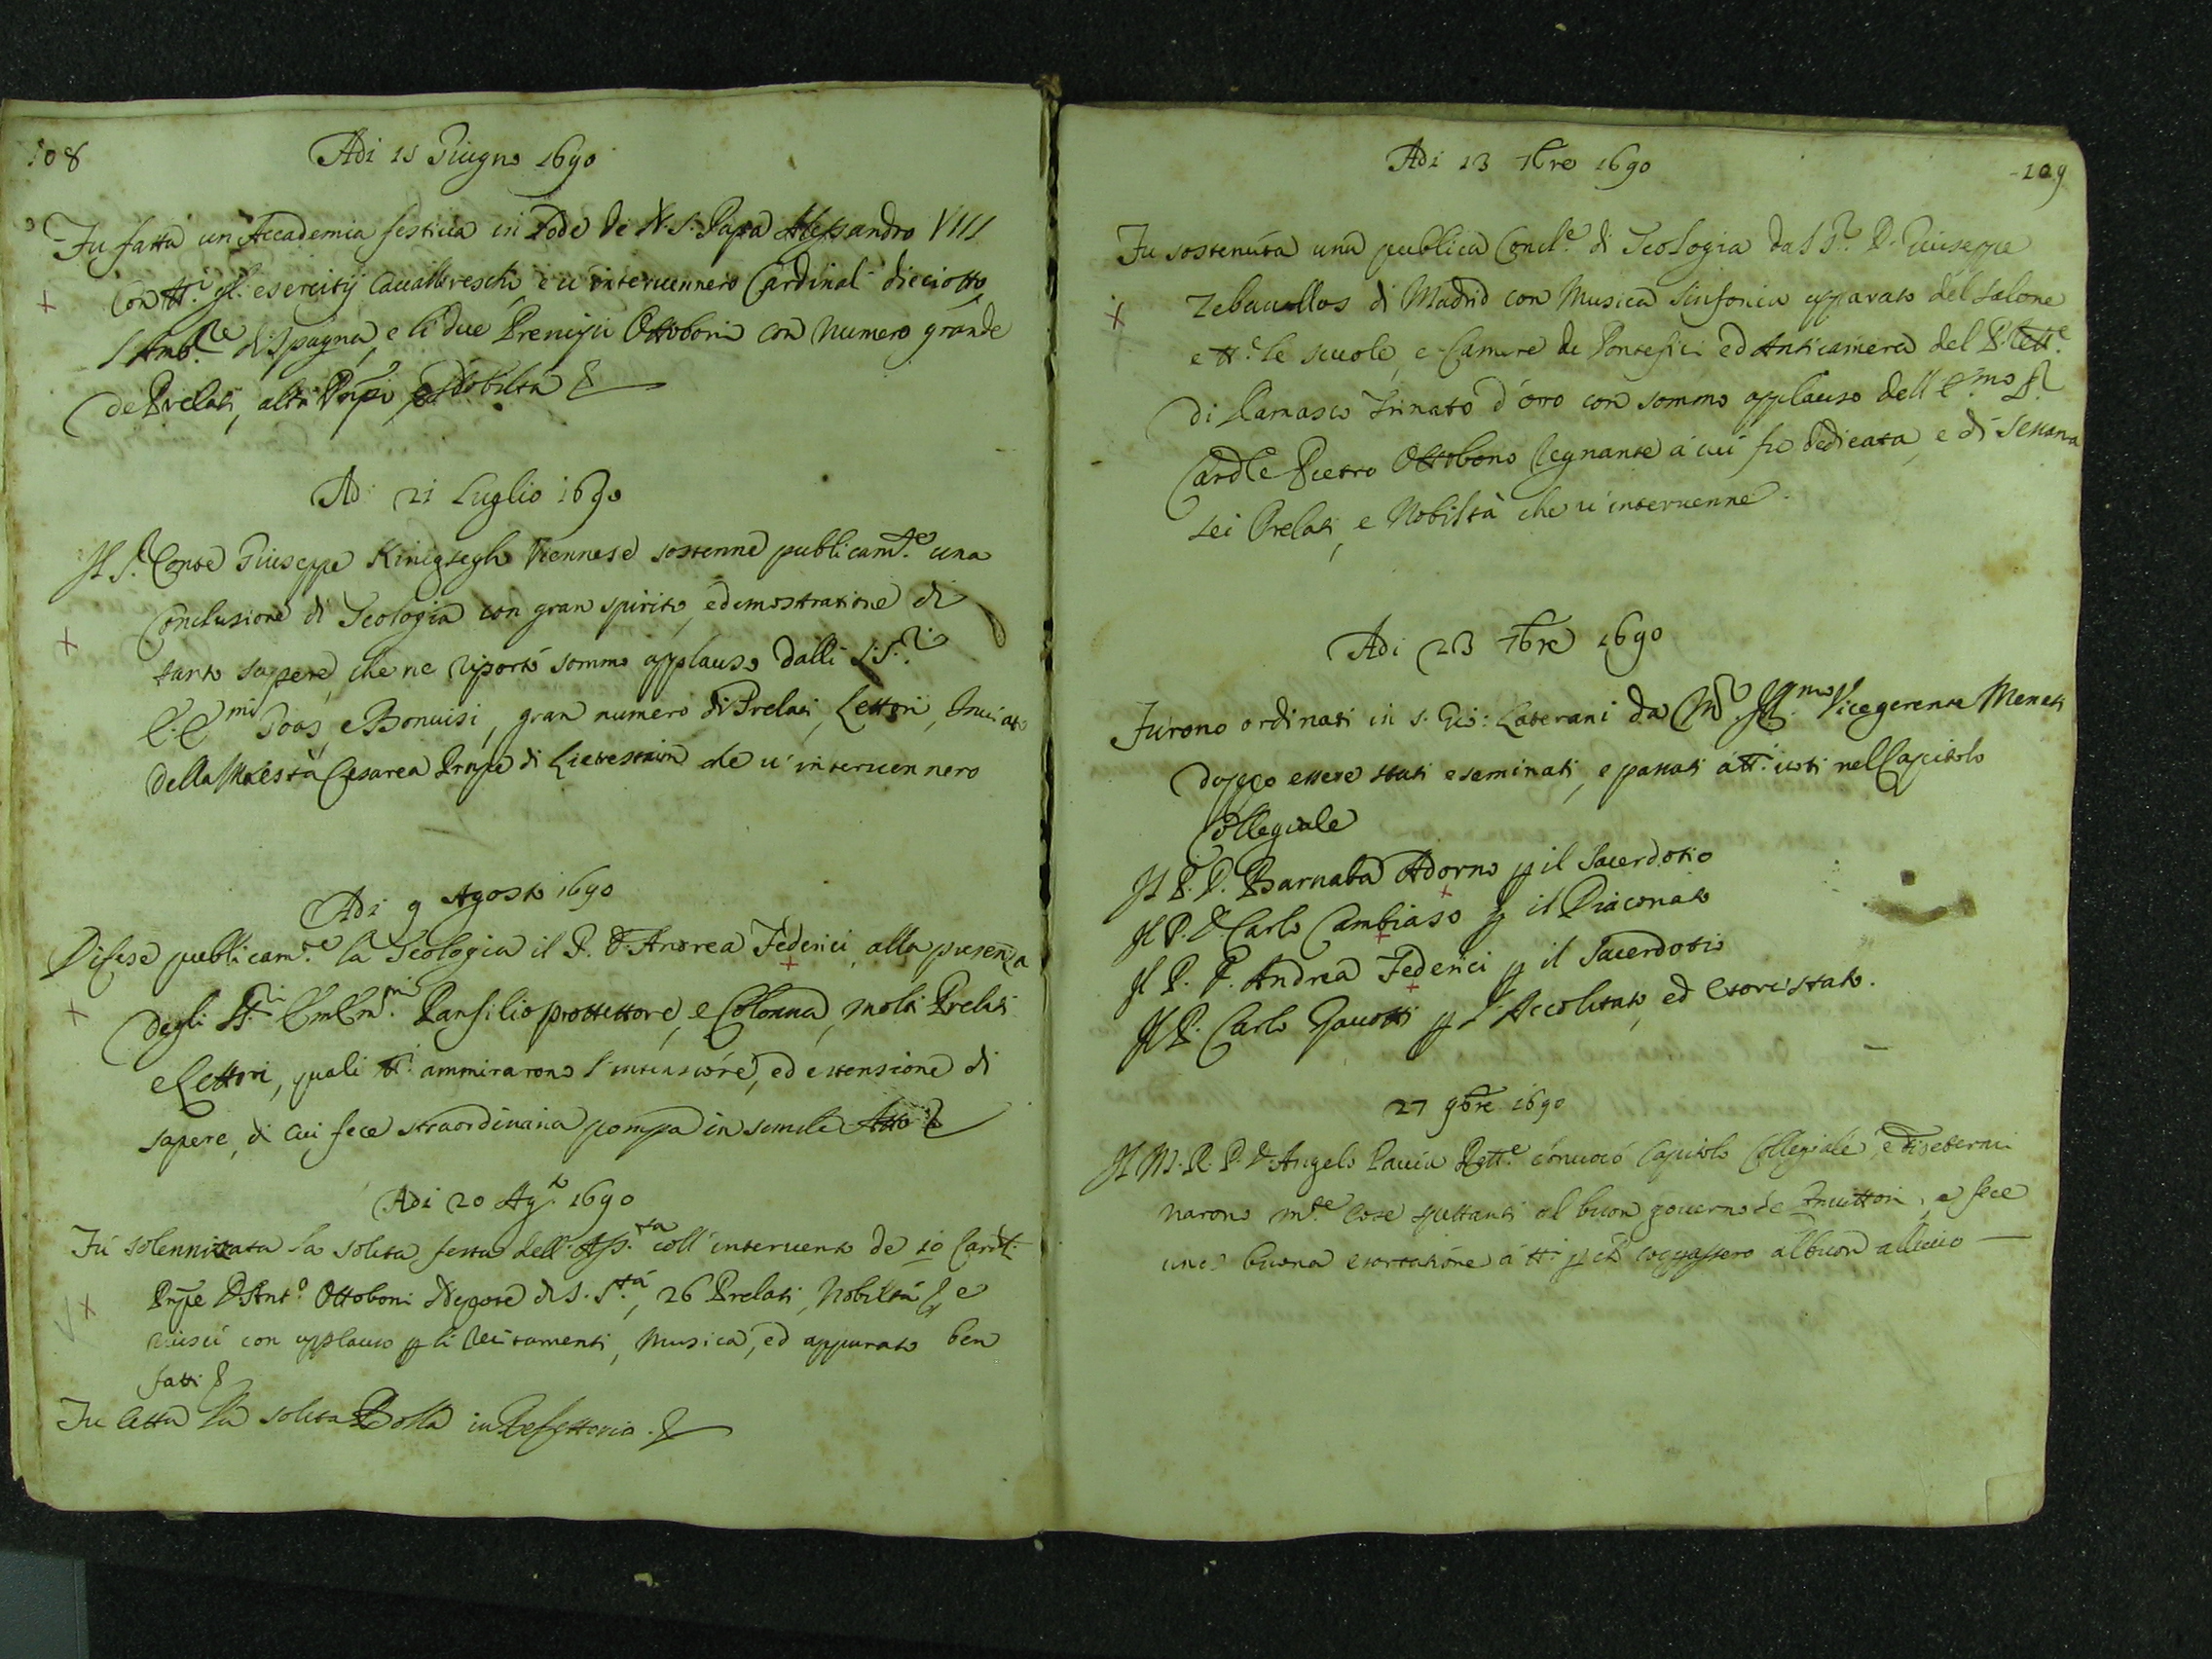 108
Adi 15 Giugno 1690
Fu fatta un Accademia festiua in Lode di N. S. Papa Alessandro VIII
con tt.i gl' esercitij Caualereschi e u' interuennero Cardinali dieciotto
l'Amb.re di Spagna, e li due Prencipi Ottoboni con numero grande
de Prelati, altri Prnpi, e Nobiltà &
Adi 21 Luglio 1690
Il S.r Conte Giuseppe Kinigsegh Viennese sostenne publicam.te una
Conclusione di Teologia con gran spirito, e demostratione di
tanto sapere, che ne riportò sommo applauso dalli S.S.ri
E.E.mi Goas, e Bonuisi, gran numero di Prelati, Lettori, Inuiato
della Maestà Cesarea Prnpe di Lietestain che u' interuennero
Adi 9 Agosto 1690
Difese publicam.te la Teologia il P. D. Andrea Federici, alla presenza
degli SS.ri EmEm.mi Panfilio prottettore, e Colonna, molti Prelati
e Lettori, quali tt.i ammirarono l' intensiore, ed estensione di
sapere, di cui fece straordinaria pompa in simile Atto &
Adi 20 Ag.to 1690
Fù solennizata la solita festa dell' Ass.ta coll' interuento de 10 Card.li
Prnpe D. Ant.o Ottoboni Nepote di S. S.tà, 26 Prelati, Nobiltà & e
riuscì con applauso p li recitamenti, Musica, ed apparato ben
fatti &
Fu letta la solita Bolla in Refettorio. &
109
Adi 13 7bre 1690
Fu sostenuta una publica Concl.e di Teologia dal S.r D. Giuseppe
Zebauallos di Madrid con Musica Sinfonia apparato del Salone
e tt.e le scuole, e Camere de Pontefici ed Anticamera del P. Rett.e
di Damasco trinato d'oro con sommo applauso dell' E.mo S.r
Cardle Pietro Ottobono Regnante à cui fu dedicata, e di Sessanta
sei Prelati, e Nobiltà che u' interuenne.
Adi 23 7bre 1690
Furono ordinati in S. Gio: Laterani da M.r Ill.mo Vicegerente Menati
doppo essere stati eseminati, e passati à tt.i uoti nel Capitolo
Collegiale
Il P. D. Barnaba Adorno p il Sacerdotio
Il P. D. Carlo Cambiaso p il Diaconato
Il P. D. Andrea Federici p il Sacerdotio
Il P. Carlo Gauotti p l' Accolitato, ed Esorcistato.
27 9bre 1690
Il M. R. P. D. Angelo Pauia Rett.e conuocò Capitolo Collegiale, e disetermi
narono m.te cose spettanti al buon gouerno de Inuittori, e fece
una buona esortatione à tt.i p ch' coopassero al buon alleuio